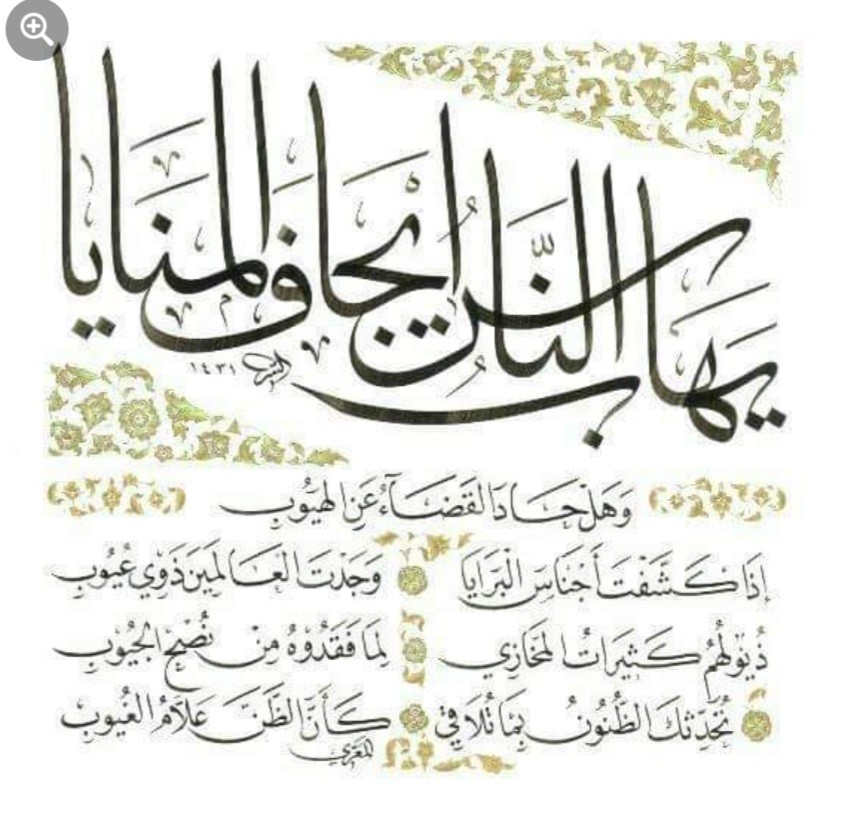 يهابُ النَّاسُ إيجافَ المنايا
١٤٣١
وَهَلْ حَادَ القَضَآءُ عَنِ الهَيُوبِ
إِذَا كَشَّفْتَ أَجْنَاسَ الْبَرَايا وَجَدْتَ العَالَمِينَ ذَوِي عُيُوبِ
ذُيُولُهُمُ كَثِيرَاتُ المَخَازِي لِمَا فَقَدُوهُ مِنْ نُصْحِ الجُيُوبِ
تُحَدِّثُكَ الظُّنُونُ بِمَا تُلَاقِي كَأَنَّ الظَّنَّ عَلَّامُ الغُيُوبِ
المعري